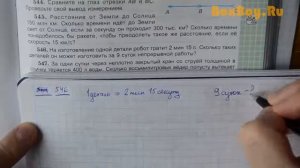 544. Сравните на глаз отрезки АВ и ВС.
Проверьте свой вывод измерением.
545. Расстояние от Земли до Солнца
150 млн км. Сколько времени идёт до Земли
свет от Солнца, если за секунду он проходит 300 тыс. км? Сколько времени
понадобилось бы ракете, чтобы преодолеть такое же расстояние, если её
скорость 15 км/с?
546. На изготовление одной детали робот тратит 2 мин 15 с. Сколько таких
деталей он сможет изготовить за 9 суток непрерывной работы?
547. За одни сутки через неплотно закрытый кран со струёй толщиной в
400 л воды. Сколько восьмилитровых вёдер попусту вытекает
BoxKey.Ru
546 1 деталь = 2 мин 15 секунд 9 суток - ?